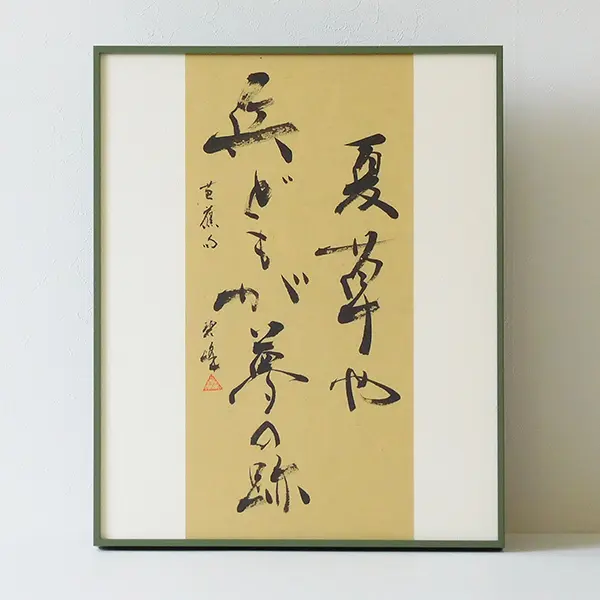 夏草や
兵どもが夢の跡
芭蕉の